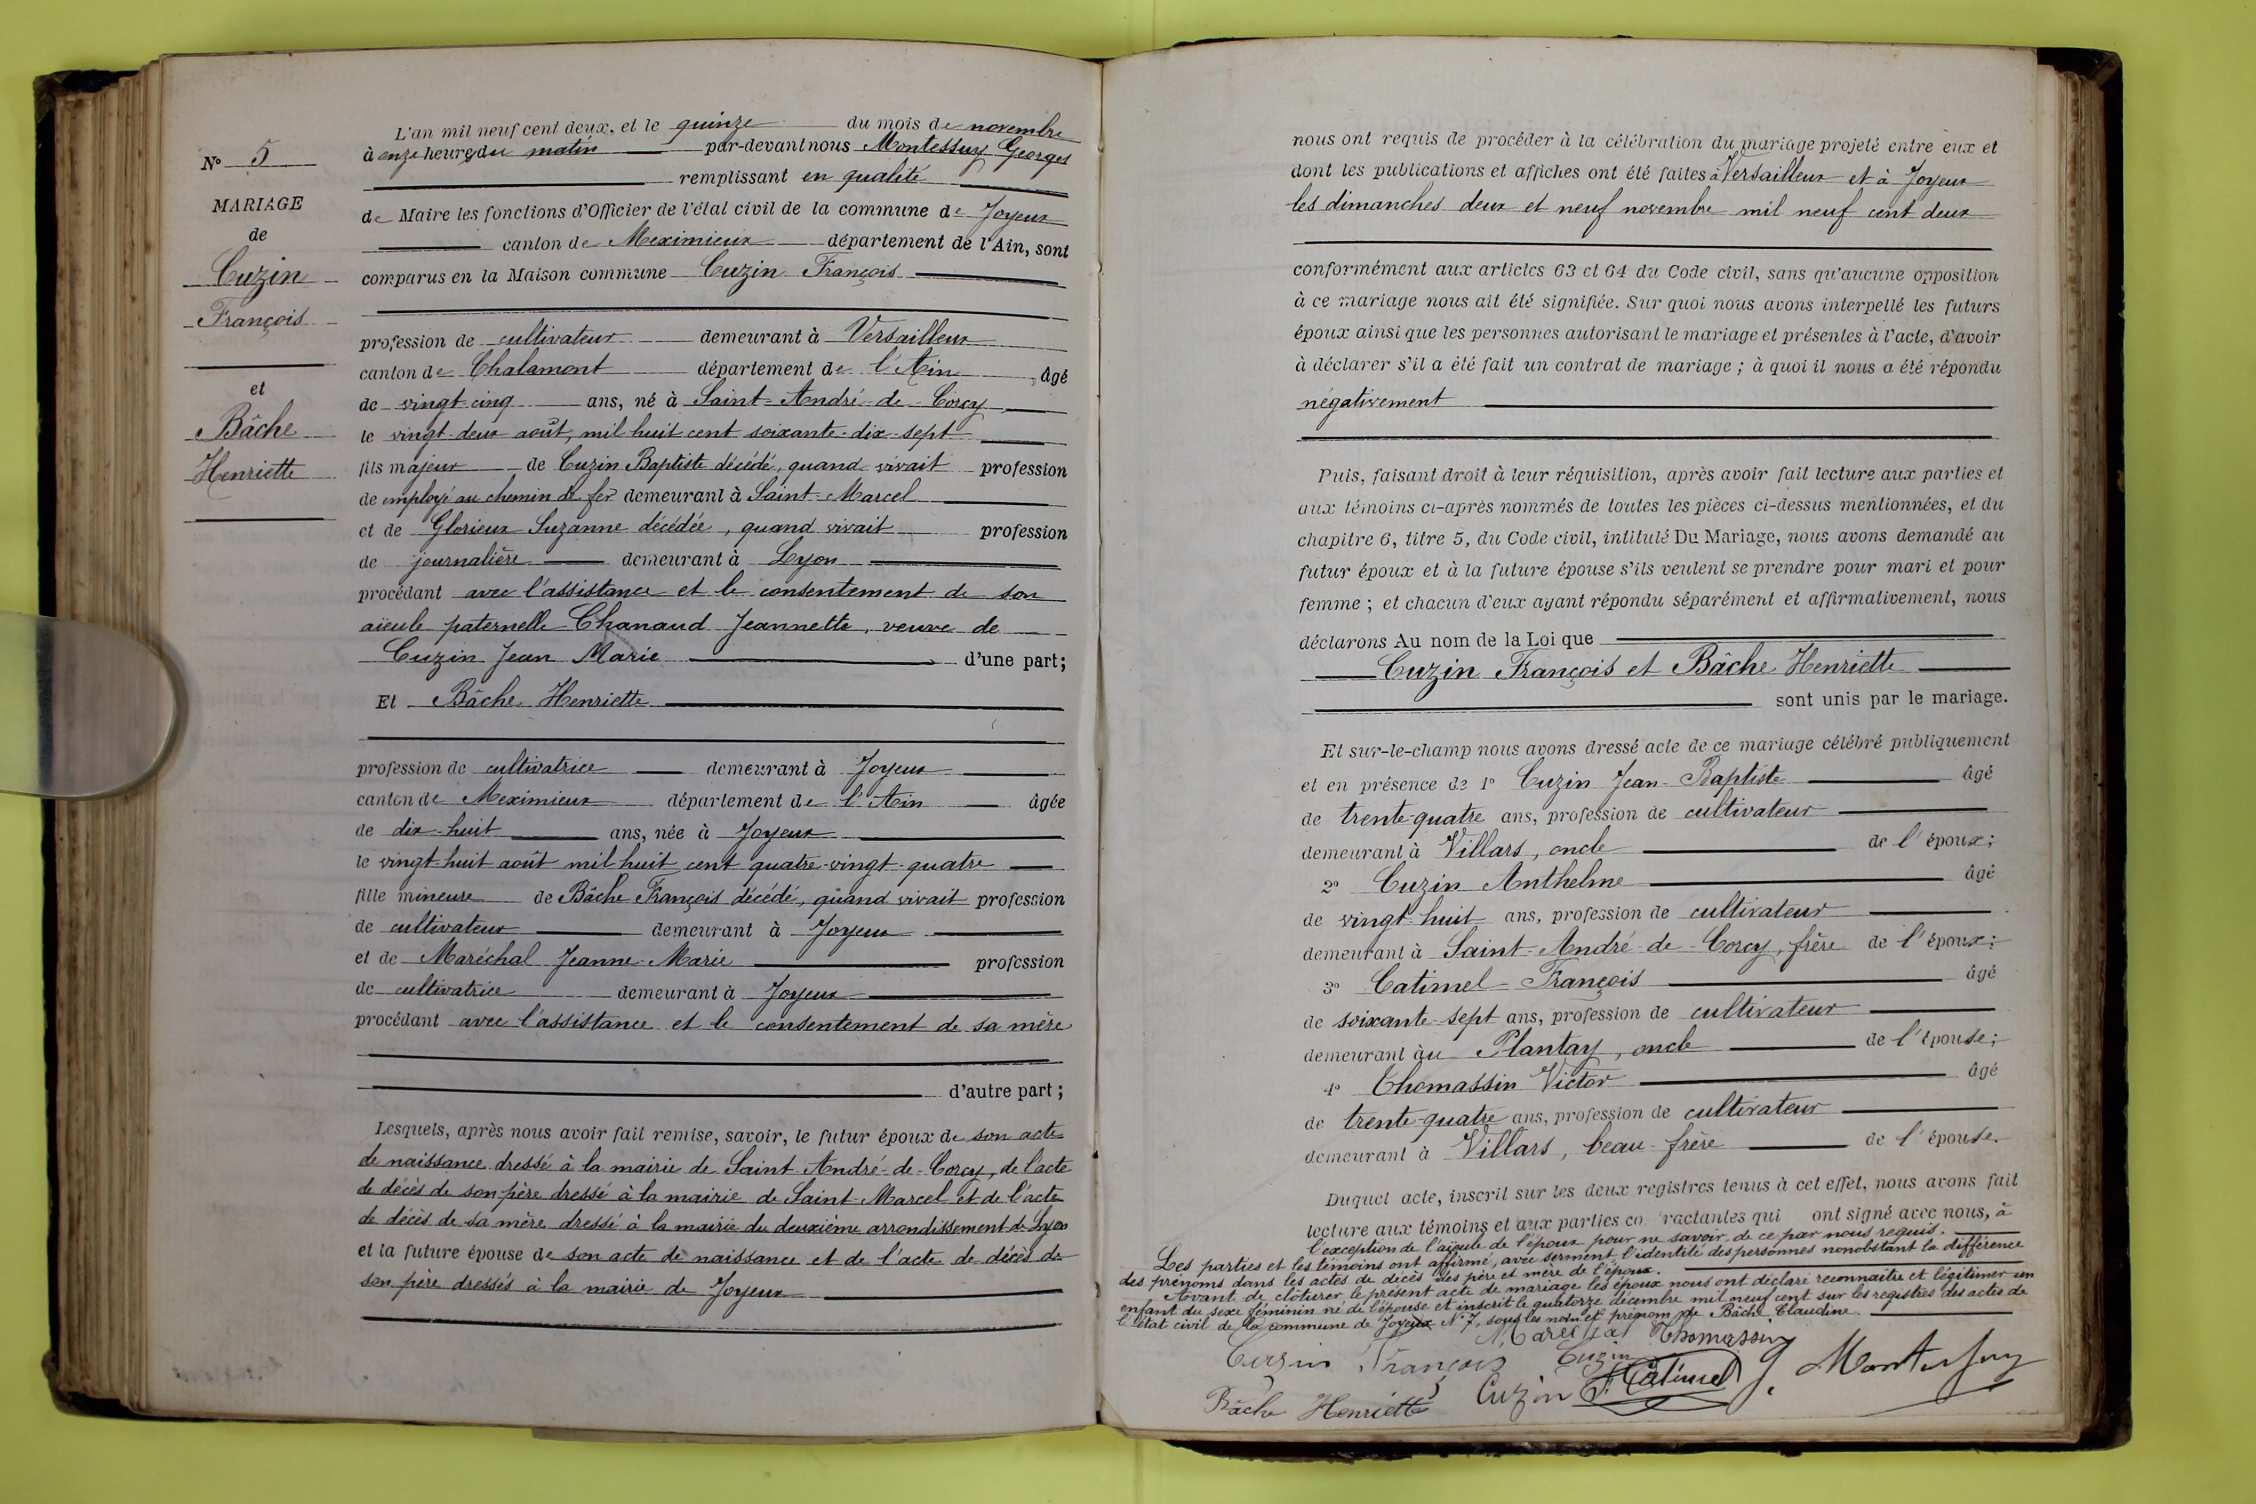 N° 5
MARIAGE
de
Cuzin
François
et
Bâche
Henriette
L'an mil neuf cent deux, et le quinze du mois de novembre
à onze heures du matin par-devant nous Montessuy Georges
remplissant en qualité
de Maire les fonctions d'Officier de l'état civil de la commune de Joyeux
canton de Meximieux département de l'Ain, sont
comparus en la Maison commune Cuzin François
profession de cultivateur demeurant à Versailleux
canton de Chalamont département de l'Ain âgé
de vingt-cinq ans, né à Saint-André-de-Corcy
le vingt-deux août, mil huit cent soixante-dix-sept
fils majeur de Cuzin Baptiste décédé, quand vivait profession
de employé au chemin de fer demeurant à Saint-Marcel
et de Glorieux Suzanne décédée, quand vivait profession
de journalière demeurant à Lyon
procédant avec l'assistance et le consentement de son
aïeule paternelle Chanaud Jeannette, veuve de
Cuzin Jean Marie d'une part;
Et Bâche Henriette
profession de cultivatrice demeurant à Joyeux
canton de Meximieux département de l'Ain âgée
de dix-huit ans, née à Joyeux
le vingt-huit août mil huit cent quatre-vingt-quatre
fille mineure de Bâche François décédé, quand vivait profession
de cultivateur demeurant à Joyeux
et de Maréchal Jeanne-Marie profession
de cultivatrice demeurant à Joyeux
procédant avec l'assistance et le consentement de sa mère
d'autre part;
Lesquels, après nous avoir fait remise, savoir, le futur époux de son acte
de naissance dressé à la mairie de Saint-André-de-Corcy, de l'acte
de décès de son père dressé à la mairie de Saint-Marcel et de l'acte
de décès de sa mère dressé à la mairie du deuxième arrondissement de Lyon
et la future épouse de son acte de naissance et de l'acte de décès de
son père dressés à la mairie de Joyeux
nous ont requis de procéder à la célébration du mariage projeté entre eux et
dont les publications et affiches ont été faites à Versailleux et à Joyeux
les dimanches deux et neuf novembre mil neuf cent deux
conformément aux articles 63 et 64 du Code civil, sans qu'aucune opposition
à ce mariage nous ait été signifiée. Sur quoi nous avons interpellé les futurs
époux ainsi que les personnes autorisant le mariage et présentes à l'acte, d'avoir
à déclarer s'il a été fait un contrat de mariage; à quoi il nous a été répondu
négativement
Puis, faisant droit à leur réquisition, après avoir fait lecture aux parties et
aux témoins ci-après nommés de toutes les pièces ci-dessus mentionnées, et du
chapitre 6, titre 5, du Code civil, intitulé Du Mariage, nous avons demandé au
futur époux et à la future épouse s'ils veulent se prendre pour mari et pour
femme; et chacun d'eux ayant répondu séparément et affirmativement, nous
déclarons Au nom de la Loi que
Cuzin François et Bâche Henriette
sont unis par le mariage.
Et sur-le-champ nous avons dressé acte de ce mariage célébré publiquement
et en présence de 1° Cuzin Jean-Baptiste âgé
de trente-quatre ans, profession de cultivateur
demeurant à Villars, oncle de l'époux;
2° Cuzin Anthelme âgé
de vingt-huit ans, profession de cultivateur
demeurant à Saint-André-de-Corcy, frère de l'époux;
3° Catimel François âgé
de soixante-sept ans, profession de cultivateur
demeurant àu Plantay, oncle de l'épouse;
4° Thomassin Victor âgé
de trente-quatre ans, profession de cultivateur
demeurant à Villars, beau-frère de l'épouse.
Duquel acte, inscrit sur les deux registres tenus à cet effet, nous avons fait
lecture aux témoins et aux parties co ractantes qui ont signé avec nous, à
l'exception de l'aïeule de l'époux pour ne savoir, de ce par nous requis.
Les parties et les témoins ont affirmé, avec serment, l'identité des personnes nonobstant la différence
des prénoms dans les actes de décès des père et mère de l'époux.
Avant de clôturer le présent acte de mariage les époux nous ont déclaré reconnaître et légitimer un
enfant du sexe féminin né de l'épouse et inscrit le quatorze décembre mil neuf cent sur les registres des actes de
l'état civil de la commune de Joyeux N° 7, sous les nom et prénom de Bâche Claudine.
Maréchal Thomassin
Cuzin François Cuzin
Cuzin F. Catimel G. Montessuy
Bâche Henriette